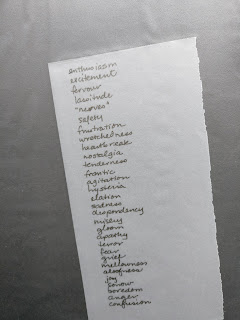 enthusiasm
excitement
fervour
lassitude
"nerves"
safety
frustration
wretchedness
heartbreak
nostalgia
tenderness
frantic
agitation
hysteria
elation
sadness
despondency
misery
gloom
apathy
terror
fear
grief
mellowness
aloofness
joy
sorrow
boredom
anger
confusion